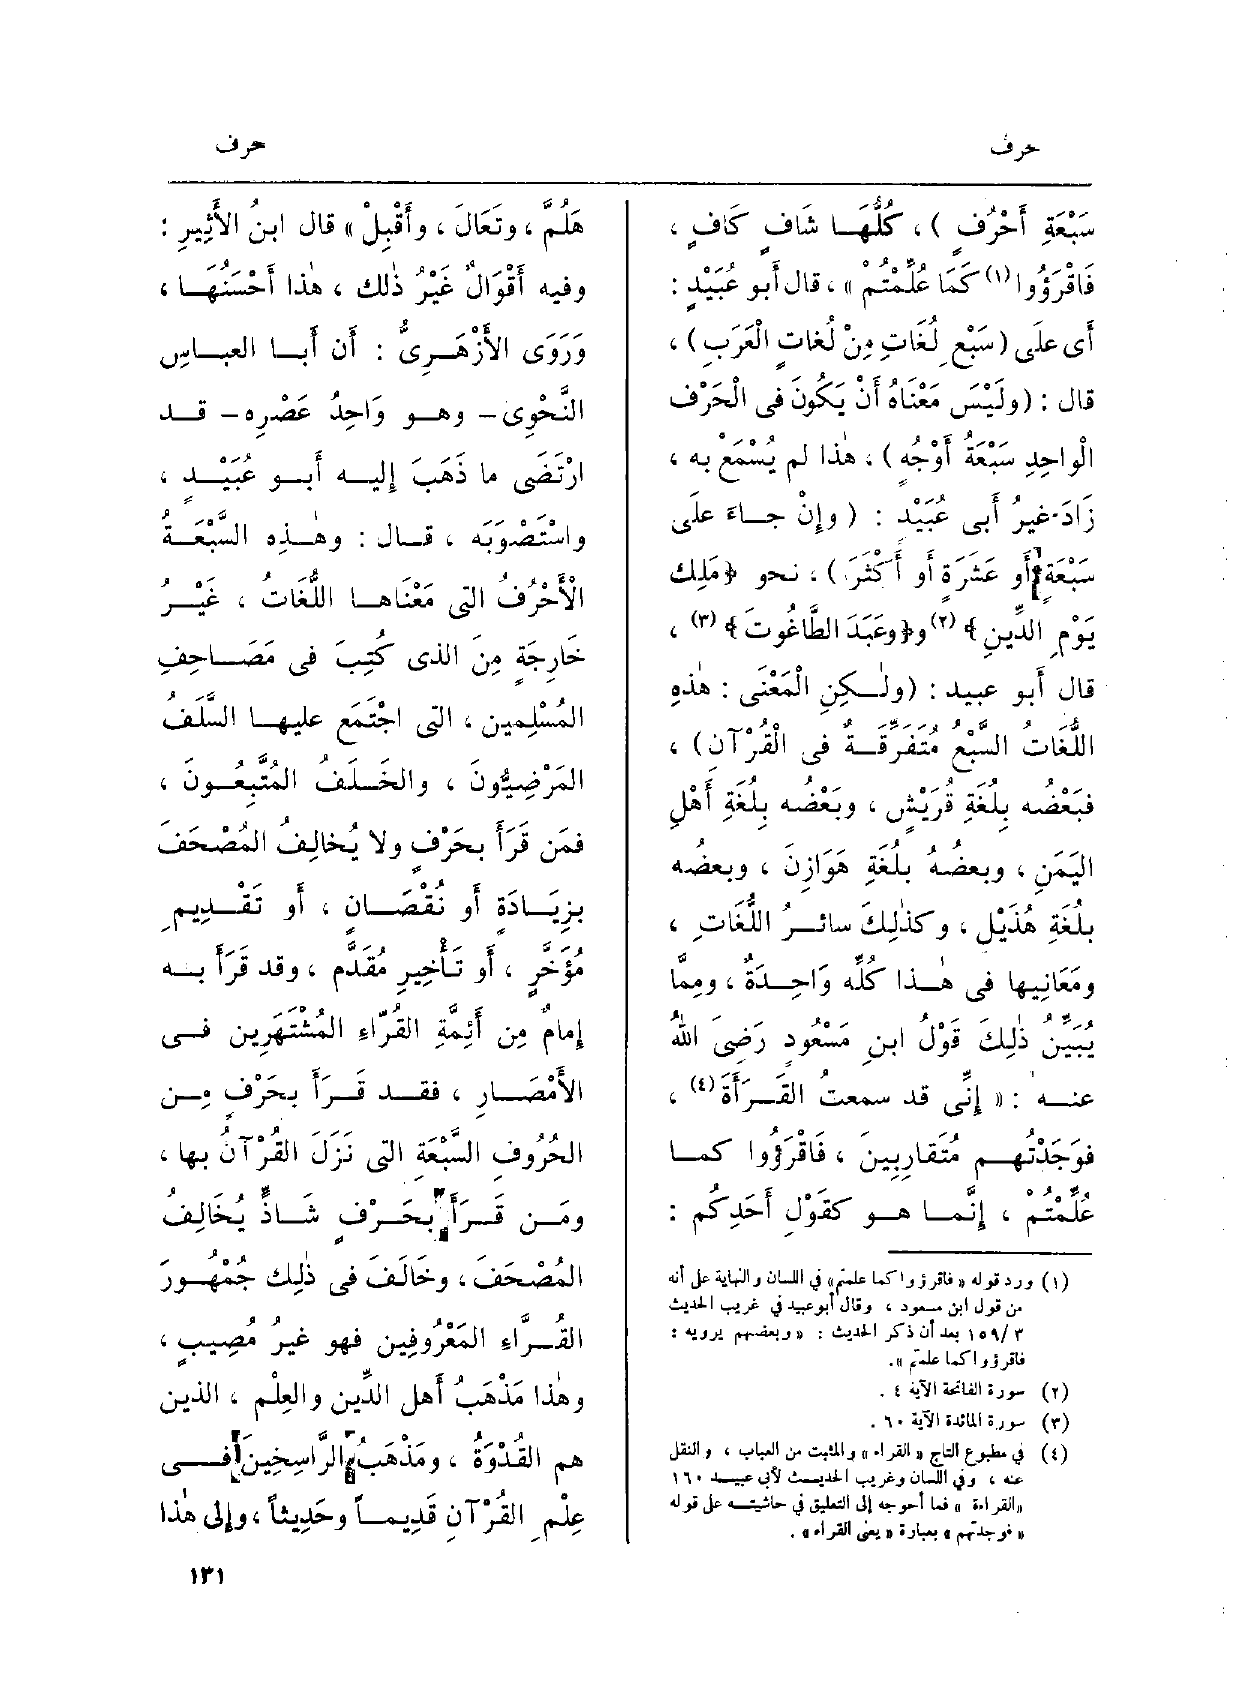 حرف
حرف
سَبْعَةِ أَحْرُفٍ ) ، كُلُّهَـا شَافٍ كَافٍ ،
فَاقْرَؤُوا (١) كَمَا عُلِّمْتُمْ » ، قال أَبو عُبَيْدٍ :
أَى على (سَبْعِ لُغَاتٍ مِنْ لُغَاتِ الْعَرَبِ) ،
قال : (ولَيْسَ مَعْنَاهُ أَنْ يَكُونَ فى الْحَرْفِ
الْواحِدِ سَبْعَةُ أَوْجُهٍ ) ، هٰذا لم يُسْمَعْ به ،
زَادَ غيرُ أَبى عُبَيْدٍ : ( وإِنْ جـاءَ علَى
سَبْعَةٍ أَو عَشَرَةٍ أَو أَكْثَرَ) ، نحو ﴿مَلِكِ
يَوْمِ الدِّينِ ﴾ (٢) و﴿وعَبَدَ الطَّاغُوتَ ﴾ (٣) ،
قال أَبو عبيد : (ولٰـكِنِ الْمَعْنَى : هٰذهِ
اللُّغَاتُ السَّبْعُ مُتَفَرِّقَـةٌ فى الْقُرْآنِ ) ،
فبَعْضُه بِلُغَةِ قُرَيْشٍ ، وبَعْضُه بِلُغَةِ أَهْلِ
اليَمَنِ ، وبعضُهُ بلُغَةِ هَوَازِنَ ، وبعضُه
بلُغَةِ هُذَيْلٍ ، وكذٰلِكَ سائـرُ اللُّغَاتِ ،
ومَعَانِيها فى هٰـذا كُلِّه وَاحِـدَةٌ ، ومِمَّا
يُبَيِّنُ ذٰلِكَ قَوْلُ ابنِ مَسْعُودٍ رَضِىَ اللهُ
عنـه : « إِنِّى قد سمعتُ القَـرَأَةَ (٤) ،
فوَجَدْتُهـم مُتَقارِبِينَ ، فَاقْرَؤُوا كمـا
عُلِّمْتُمْ ، إِنَّمـا هـو كقَوْلِ أَحَدِكُم :
(١) ورد قوله « فاقرؤوا كما علمتم» في اللسان والنهاية على أنه
من قول ابن مسعود ، وقال أبو عبيد في غريب الحديث
٣ / ١٥٩ بعد أن ذكر الحديث : « وبعضهم يرويه :
فاقرؤوا كما علمتم » .
(٢) سورة الفاتحة الآية ٤ .
(٣) سورة المائدة الآية ٦٠ .
(٤) في مطبوع التاج « القراء » والمثبت من العباب ، والنقل
عنه ، وفي اللسان وغريب الحديـث لأبي عبيـد ١٦٠
«القراءة » فما أحوجه إلى التعليق في حاشيتـه على قوله
« فوجدتهم » بعبارة « يعنى القراء » .
هَلُمَّ ، وتَعَالَ ، وأَقْبِلْ » قال ابنُ الأَثِيرِ :
وفيه أَقْوَالٌ غَيْرُ ذٰلك ، هٰذا أَحْسَنُهَـا ،
وَرَوَى الأَزْهَـرِىُّ : أَن أَبـا العبـاسِ
النَّحْوِى – وهـو وَاحِدُ عَصْرِه – قـد
ارْتَضَى ما ذَهَبَ إِليـه أَبـو عُبَيْـدٍ ،
واسْتَصْوَبَه ، قـال : وهٰـذِه السَّبْعَـةُ
الْأَحْرُفُ التى مَعْنَاهـا اللُّغَاتُ ، غَيْـرُ
خَارِجَةٍ مِنَ الذى كُتِبَ فى مَصَـاحِفِ
المُسْلِمين ، التى اجْتَمَع عليهـا السَّلَفُ
المَرْضِيُّونَ ، والخَـلَفُ المُتَّبِعُـونَ ،
فمَن قَرَأَ بحَرْفٍ ولا يُخالِفُ المُصْحَفَ
بزِيَـادَةٍ أَو نُقْصَـانٍ ، أَو تَقْـدِيمِ
مُؤَخَّرٍ ، أَو تَأْخِيرِ مُقَدَّمٍ ، وقد قَرَأَ بـه
إِمامٌ مِن أَئِمَّةِ القُرَّاءِ المُشْتَهَرِين فـى
الأَمْصَـارِ ، فقـد قَـرَأَ بحَرْفٍ مِـن
الحُرُوفِ السَّبْعَةِ التى نَزَلَ القُرْآنُ بها ،
ومَـن قَـرَأَ بِحَـرْفٍ شَـاذٍّ يُخَالِفُ
المُصْحَفَ ، وخَالَفَ فى ذٰلِك جُمْهُـورَ
القُـرَّاءِ المَعْرُوفِين فهو غيرُ مُصِيبٍ ،
وهٰذا مَذْهَبُ أَهلِ الدِّينِ والعِلْمِ ، الذين
هم القُدْوَةُ ، ومَذْهَبُ الرَّاسِخِينَ فـى
عِلْمِ القُرْآنِ قَدِيمـاً وحَدِيثاً ، وإِلى هٰذا
١٣١